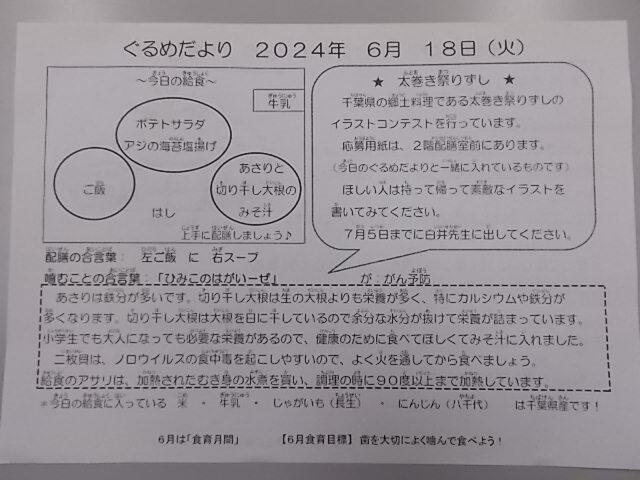 ぐるめだより　２０２４年　６月　１８日（火）
～今日の給食～
牛乳
ポテトサラダ
アジの海苔塩揚げ
ご飯
あさりと
切り干し大根の
みそ汁
はし
上手に配膳しましょう♪
★　太巻き祭りずし　★
千葉県の郷土料理である太巻き祭りずしの
イラストコンテストを行っています。
応募用紙は、２階配膳室前にあります。
（今日のぐるめだよりと一緒に入れているものです）
ほしい人は持って帰って素敵なイラストを
書いてみてください。
７月５日までに白井先生に出してください。
配膳の合言葉：　左ご飯　に　右スープ
噛むことの合言葉：「ひみこのはがいーぜ」　が：がん予防
あさりは鉄分が多いです。切り干し大根は生の大根よりも栄養が多く、特にカルシウムや鉄分が
多くなります。切り干し大根は大根を日に干しているので余分な水分が抜けて栄養が詰まっています。
小学生でも大人になっても必要な栄養があるので、健康のために食べてほしくてみそ汁に入れました。
二枚貝は、ノロウイルスの食中毒を起こしやすいので、よく火を通してから食べましょう。
給食のアサリは、加熱されたむき身の水煮を買い、調理の時に９０度以上まで加熱しています。
＊今日の給食に入っている　米　・　牛乳　・　じゃがいも（長生）　・　にんじん（八千代）　は千葉県産です！
６月は「食育月間」　【６月食育目標】歯を大切によく噛んで食べよう！